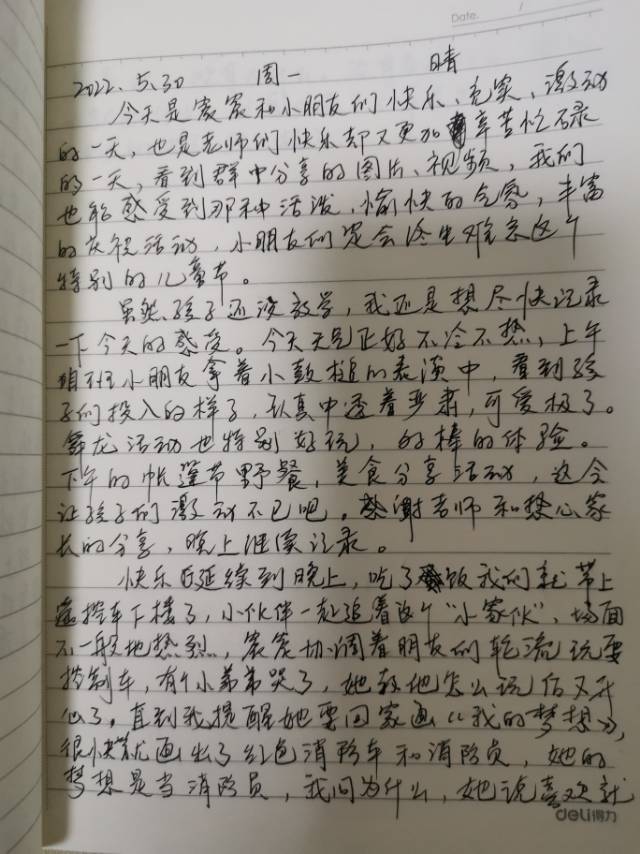 Date. /
2022.5.30 周一 晴
今天是宸宸和小朋友们快乐、充实、激动
的一天,也是老师们快乐却又更加辛苦忙碌
的一天,看到群中分享的图片、视频,我们
也能感受到那种活泼、愉快的气氛,丰富
的庆祝活动,小朋友们定会终生难忘这个
特别的儿童节。
虽然孩子还没放学,我还是想尽快记录
一下今天的感受。今天天气正好不冷不热,上午
班小朋友拿着小鼓槌的表演中,看到孩
子们投入的样子,认真中透着严肃,可爱极了。
舞龙活动也特别好玩,的棒的体验。
下午的帐篷节野餐,美食分享活动,这会
让孩子们激动不已吧。感谢老师和热心家
长的分享,晚上继续记录。
快乐延续到晚上,吃了饭我们就带上
遥控车下楼了,小伙伴一起追着这个“小家伙”,场面
不一般地热烈,宸宸协调着朋友们轮流玩耍
控制车,有个小弟弟哭了,她教他怎么玩后又开
心了。直到我提醒她要回家画《我的梦想》,
很快就画出了红色消防车和消防员,她的
梦想是当消防员,我问为什么,她说喜欢就
deli得力